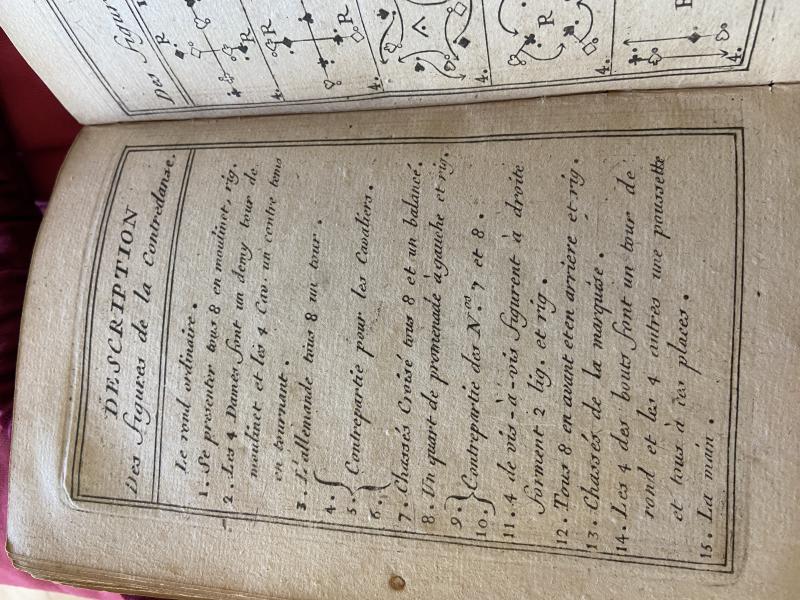 DESCRIPTION
Des figures de la Contredanse.
Le rond ordinaire.
1. Se presenter tous 8 en moulinet, rig.
2. Les 4 Dames font un demy tour de
moulinet et les 4 Cav. un contre tems
en tournant.
3. L'allemande tous 8 un tour.
4.
5. Contrepartie pour les Cavaliers.
6.
7. Chassés Croisé tous 8 et un balancé.
8. Un quart de promenade à gauche et rig.
9.
10. Contrepartie des N.os 7 et 8.
11. 4 de vis-à-vis figurent à droite
forment 2 lig. et rig.
12. Tous 8 en avant et en arriere et rig.
13. Chassés de la marquise.
14. Les 4 des bouts font un tour de
rond et les 4 autres une poussette
et tous à ces places.
15. La main.
Des figur
R
R
4.
R
4.
4.
R
4.
4.